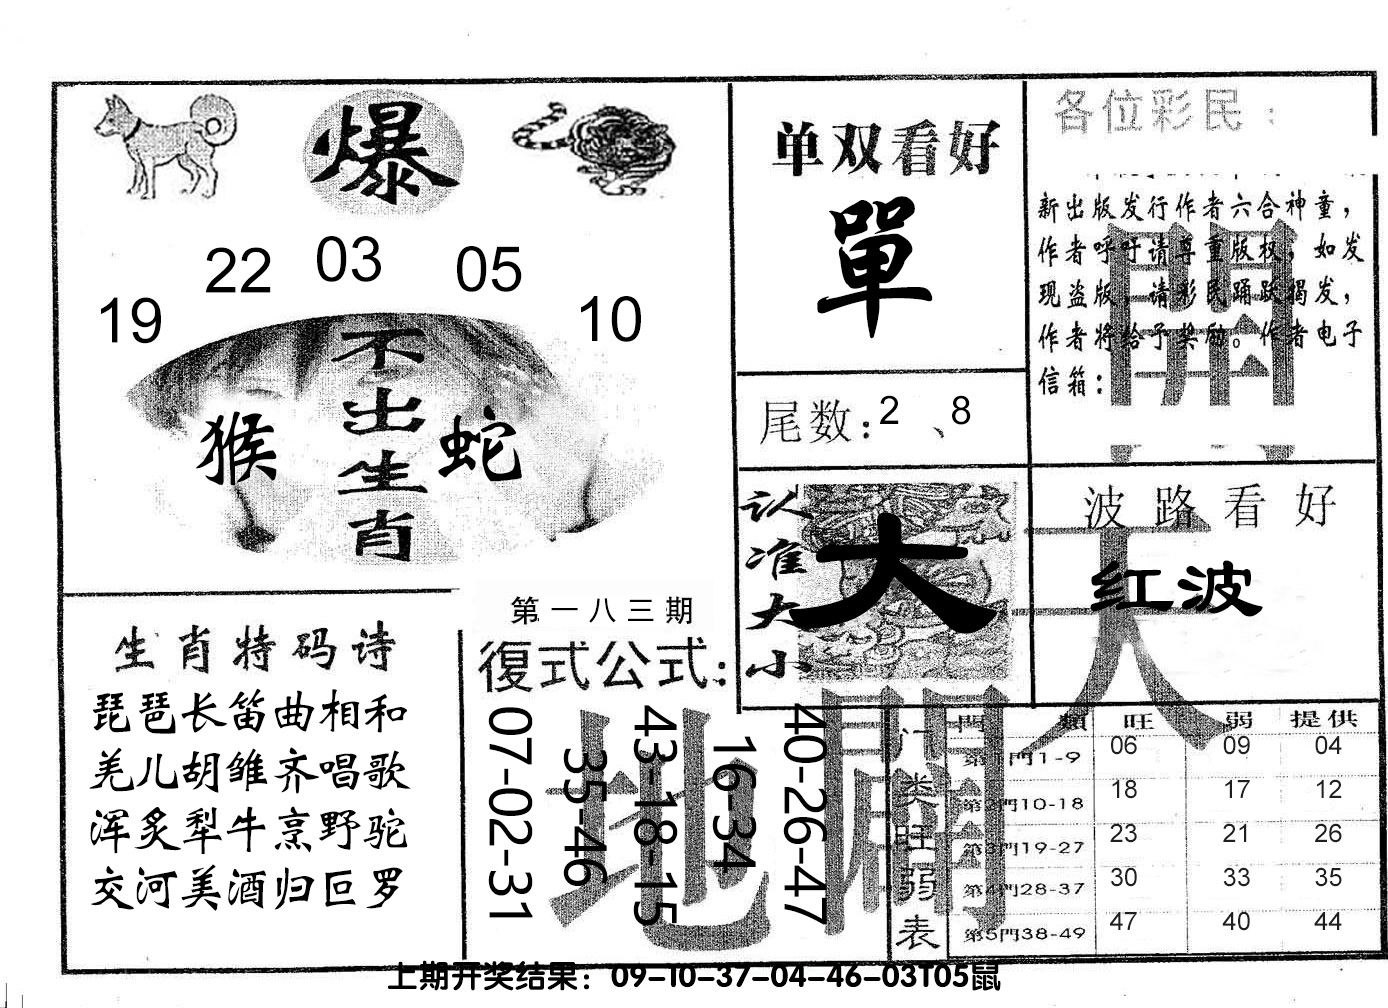 爆
22 03 05
19 10
不出生肖
猴 蛇
单双看好
單
尾数:2 、8
各位彩民:
新出版发行作者六合神童，
作者呼吁请尊重版权，如发
现盗版，请彩民踊跃揭发，
作者将给予奖励。作者电子
信箱:
開
天
认准大小
大
波路看好
红波
生肖特码诗
琵琶长笛曲相和
羌儿胡雏齐唱歌
浑炙犁牛烹野驼
交河美酒归叵罗
第一八三期
復式公式:
07-02-31
35-46
43-18-15
16-34
40-26-47
地
闢
门类旺弱表
門 類 旺 弱 提供
第1門1-9 06 09 04
第2門10-18 18 17 12
第3門19-27 23 21 26
第4門28-37 30 33 35
第5門38-49 47 40 44
上期开奖结果：09-10-37-04-46-03T05鼠